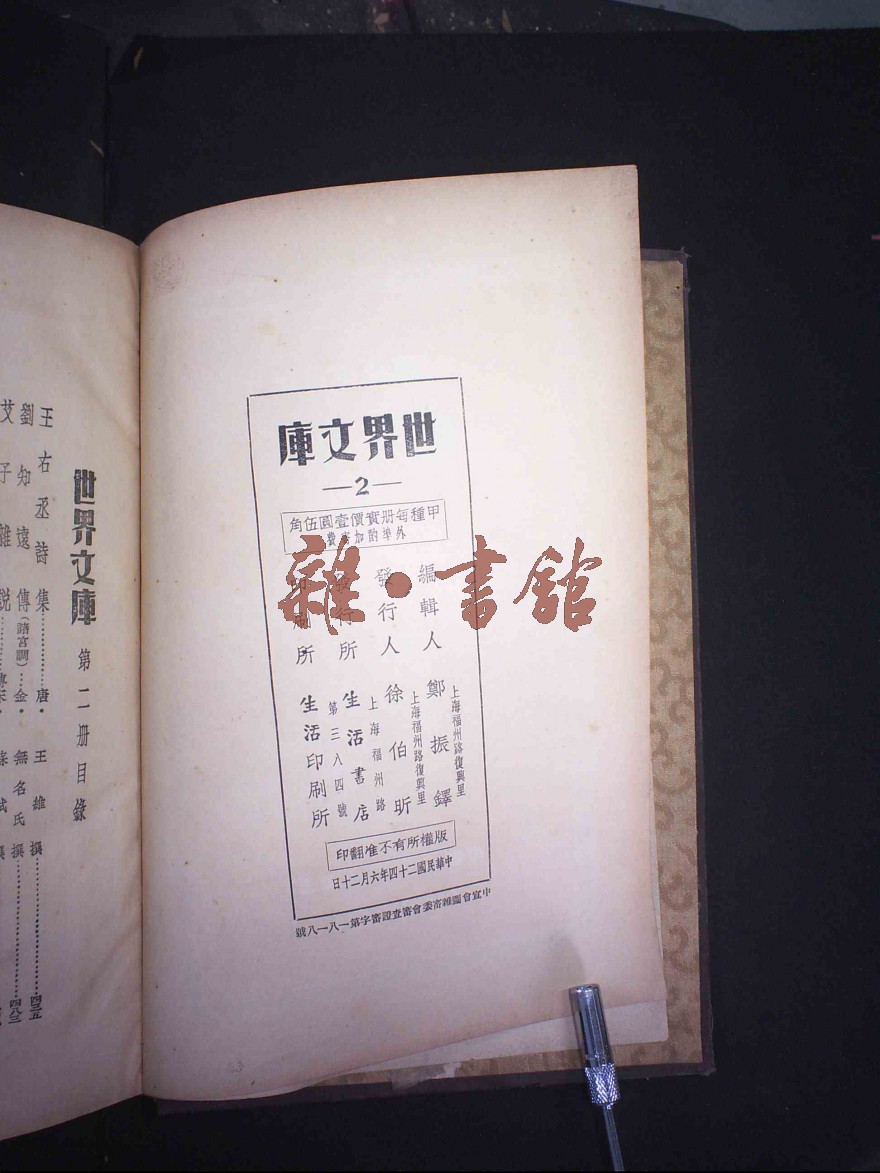 世界文庫
—2—
甲種每册實價壹圓伍角
外埠酌加寄費
編輯人 鄭振鐸
上海福州路復興里
發行人 徐伯昕
上海福州路復興里
發行所 生活書店
上海福州路
第三八四號
印刷所 生活印刷所
版權所有不准翻印
中華民國二十四年六月二十日
中宣會圖雜審委會審查證審字第一八一八號
雜·書館
世界文庫 第二册目錄
王右丞詩集……唐·王維撰……四三五
劉知遠傳(諸宮調)…金·無名氏撰……四八三
艾子雜說